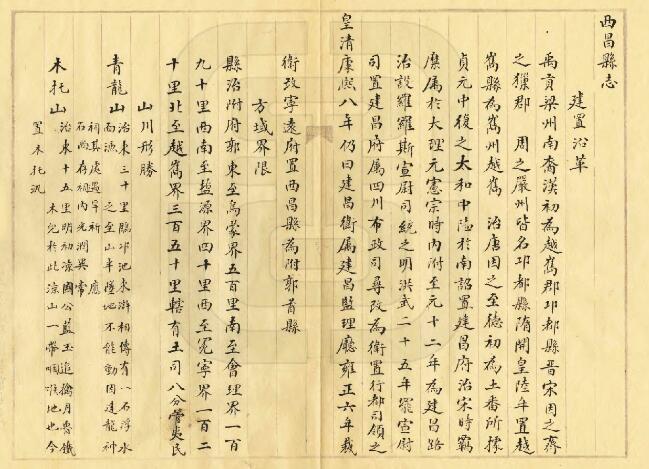 西昌縣志
建置沿革
禹貢梁州南裔漢初為越嶲郡邛都縣晉宋因之齊
之獠郡 周之嚴州皆名邛都縣隋開皇陸年置越
嶲縣為嶲州越嶲 治唐因之至德初為土番所據
貞元中復之太和中陷於南詔置建昌府治宋時羈
縻屬於大理元憲宗時內附至元十二年為建昌路
治設羅羅斯宣尉司統之明洪武二十五年罷宣尉
司置建昌府屬四川布政司尋改為衛置行都司領之
皇清康熙八年仍曰建昌衛屬建昌監理廳雍正六年裁
衛改寧遠府置西昌縣為附郭首縣
方域界限
縣治附府郭東至烏蒙界五百里南至會理界一百
九十里西南至鹽源界四十里西至冕寧界一百二
十里北至越嶲界三百五十里轄有土司八分管夷民
山川形勝
青龍山 治東三十里臨邛池水滸相傳有八石浮水
而流 之至山半墜地不能動因建龍神
祠其處遇旱祈 應
石尚存祠內光潤異常
木托山 治東十五里明初涼國公藍玉追擒月魯鐵
木兒於此涼山一帶咽喉地也今
置木托汛